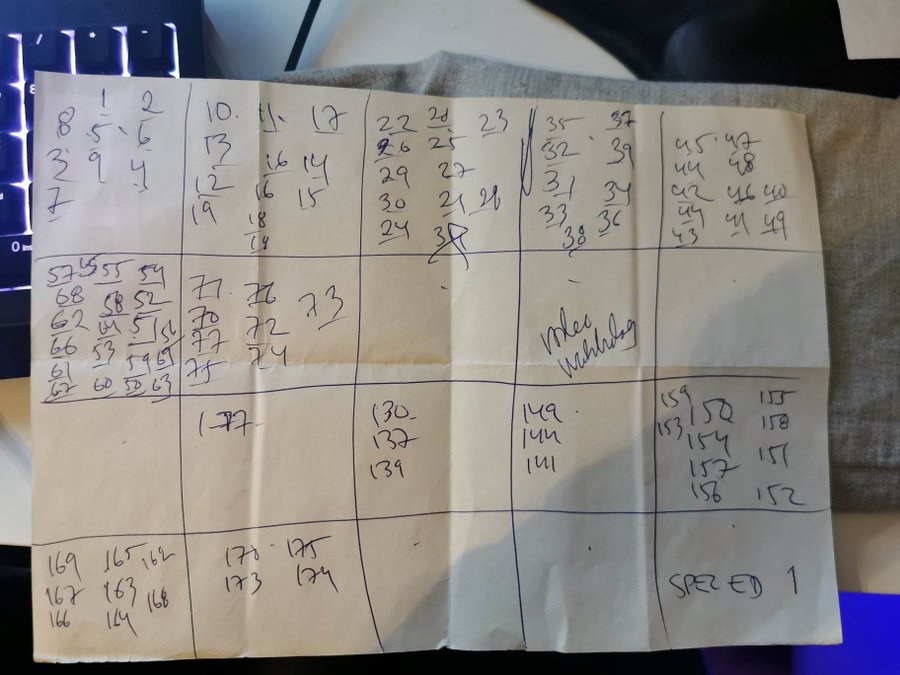 1 2
8 5 6
3 9 4
7
10 11 17
13
16 14
12 16 15
19 18
18
22 23
26 25
29 27
30 21 28
24
35 37
32 39
31 34
33 36
38
45 47
44 48
42 46 40
44 41 49
43
57 55 54
68 58 52
62 51 56
66 53 59 69
61
67 60 50 63
71 76 73
70 72
77 74
75
video
watchdog
177
130
137
139
149
144
141
159 150 155
153 154 158
157 151
156 152
169 165 162
167 163 168
166 164
170 175
173 174
SPEZ ED 1